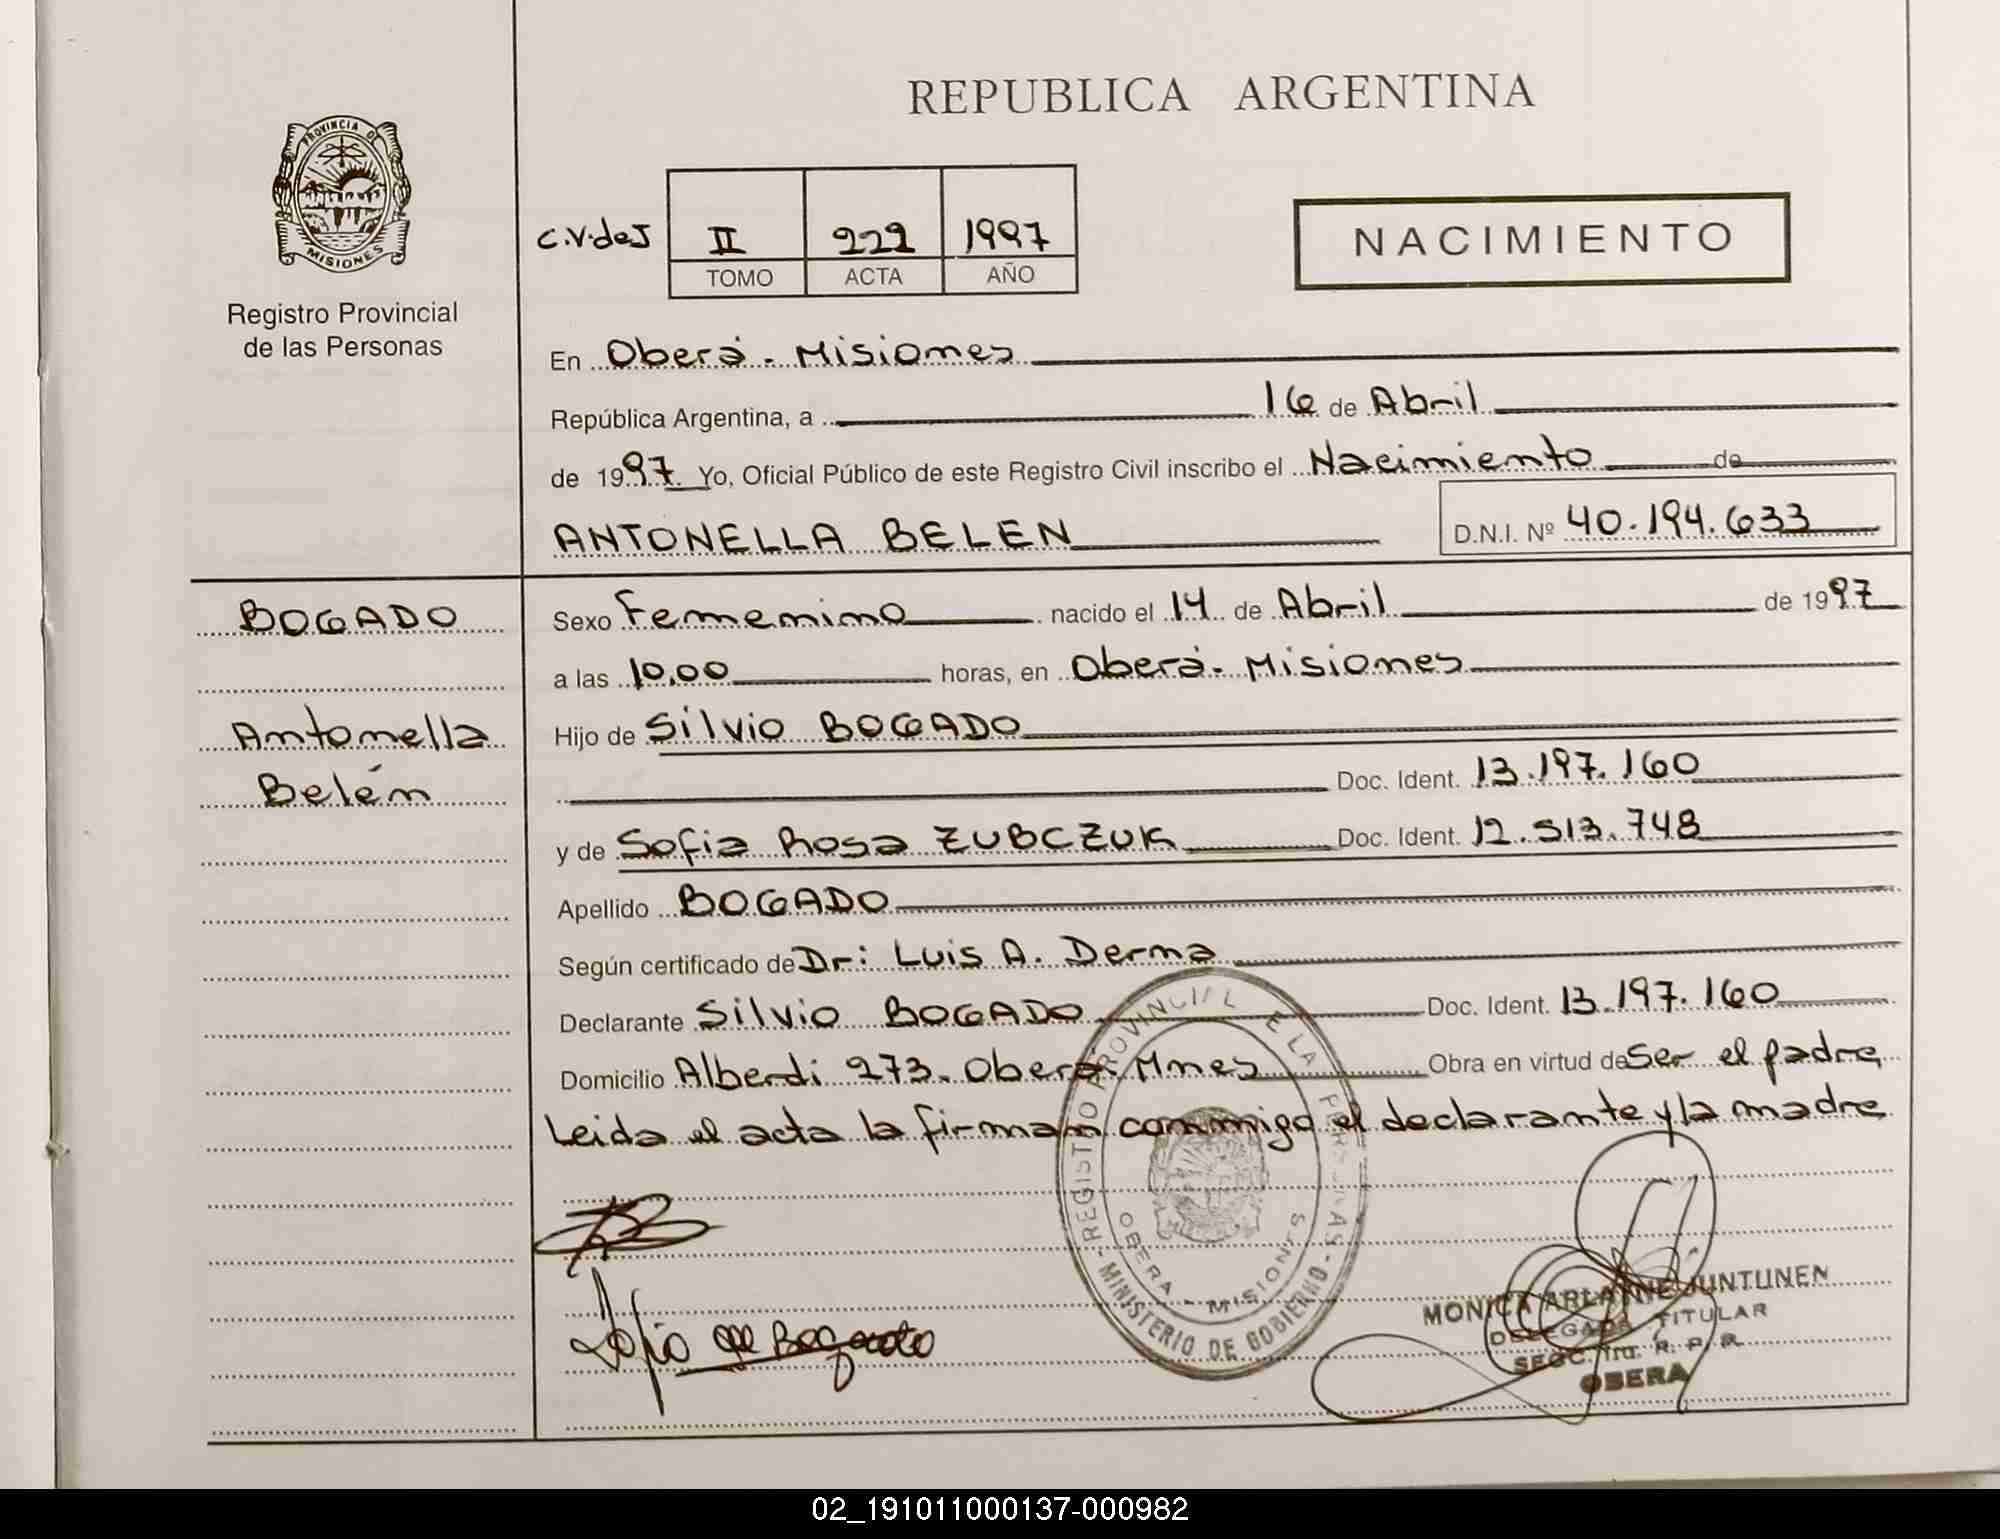 REPUBLICA ARGENTINA
PROVINCIA DE
MISIONES
Registro Provincial
de las Personas
C.V.deJ II 222 1997
TOMO ACTA AÑO
NACIMIENTO
En Oberá - Misiones
República Argentina, a 16 de Abril
de 1997 Yo, Oficial Público de este Registro Civil inscribo el Nacimiento de
ANTONELLA BELEN D.N.I. Nº 40.194.633
BOGADO
Antonella
Belén
Sexo Femenino nacido el 14 de Abril de 1997
a las 10,00 horas, en Oberá - Misiones
Hijo de Silvio BOGADO
Doc. Ident. 13.197.160
y de Sofia Rosa ZUBCZUK Doc. Ident. 12.513.748
Apellido BOGADO
Según certificado de Dr: Luis A. Derna
Declarante Silvio BOGADO Doc. Ident. 13.197.160
Domicilio Alberdi 273. Oberá. Mnes Obra en virtud de Ser el padre
Leida el acta la firman conmigo el declarante y la madre
REGISTRO PROVINCIAL DE LAS PERSONAS - MINISTERIO DE GOBIERNO -
OBERA - MISIONES
Sofia de Bogado
MONICA ARLANNE JUNTUNEN
DELEGADA TITULAR
SECC. 1ra. R. P. P.
OBERA
02_191011000137-000982